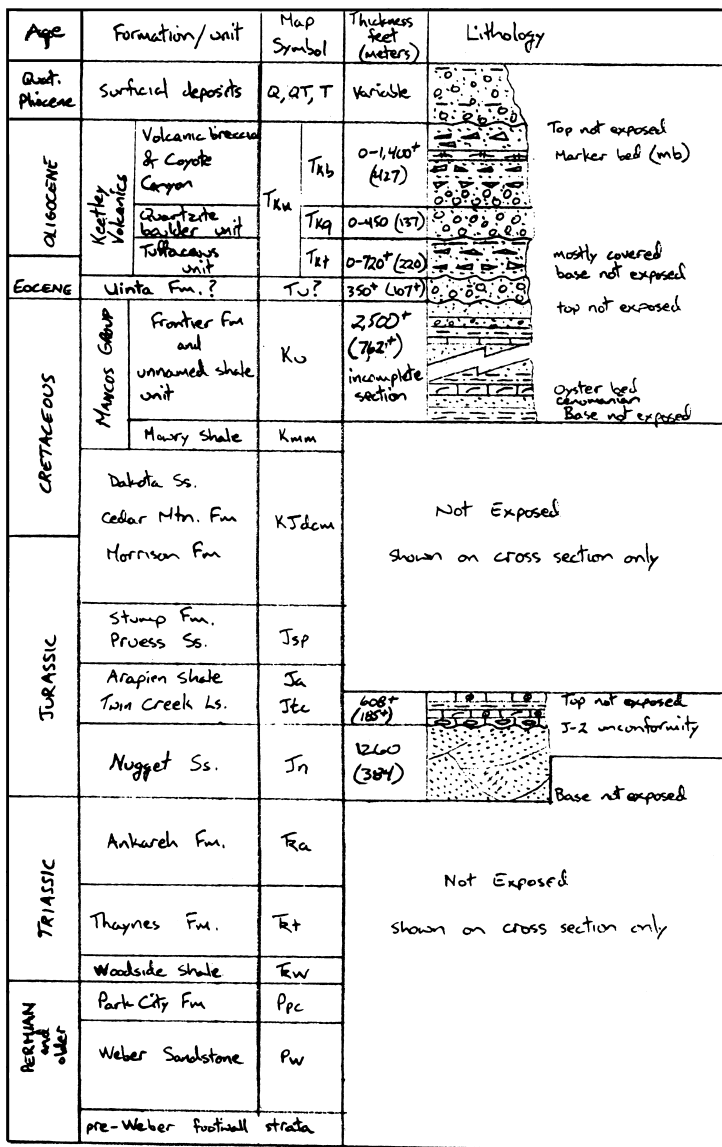 Age Formation/unit Map Symbol Thickness feet (meters) Lithology
Quat. Pliocene Surficial deposits Q, QT, T Variable
OLIGOCENE
Keetley Volcanics
Volcanic breccia
& Coyote
Canyon
Tku
Tkb
0-1,400+
(427)
Top not exposed
Marker bed (mb)
Quartzite
boulder unit
Tkq
0-450 (137)
Tuffaceous
unit
Tkt
0-720+ (220)
mostly covered
base not exposed
EOCENE Uinta Fm.? Tu? 350+ (107+)
top not exposed
CRETACEOUS
MANCOS GROUP
Frontier Fm
and
unnamed shale
unit
Ku
2,500+
(762+)
incomplete
section
Oyster bed
cenomanian
Base not exposed
Mowry Shale Kmm
Dakota Ss.
Cedar Mtn. Fm
Morrison Fm
KJdcm
Not Exposed
shown on cross section only
JURASSIC
Stump Fm.
Pruess Ss. Jsp
Arapien Shale Ja
Twin Creek Ls. Jtc
608+
(185+)
Top not exposed
J-2 unconformity
Nugget Ss. Jn
1260
(384)
Base not exposed
TRIASSIC
Ankareh Fm. TRa
Not Exposed
Thaynes Fm. TRt
shown on cross section only
Woodside Shale TRw
PERMIAN
and
older
Park City Fm Ppc
Weber Sandstone Pw
pre-Weber footwall strata